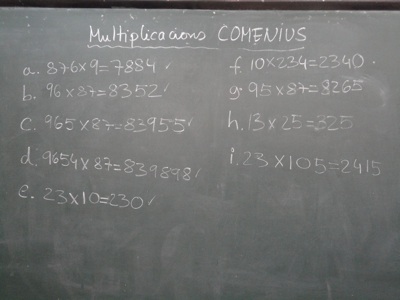 Multiplicacions COMENIUS
a. 876×9=7884 ✓
b. 96×87=8352 ✓
c. 965×87=83955 ✓
d. 9654×87=839898 ✓
e. 23×10=230 ✓
f. 10×234=2340 .
g. 95×87=8265
h. 13×25=325
i. 23×105=2415